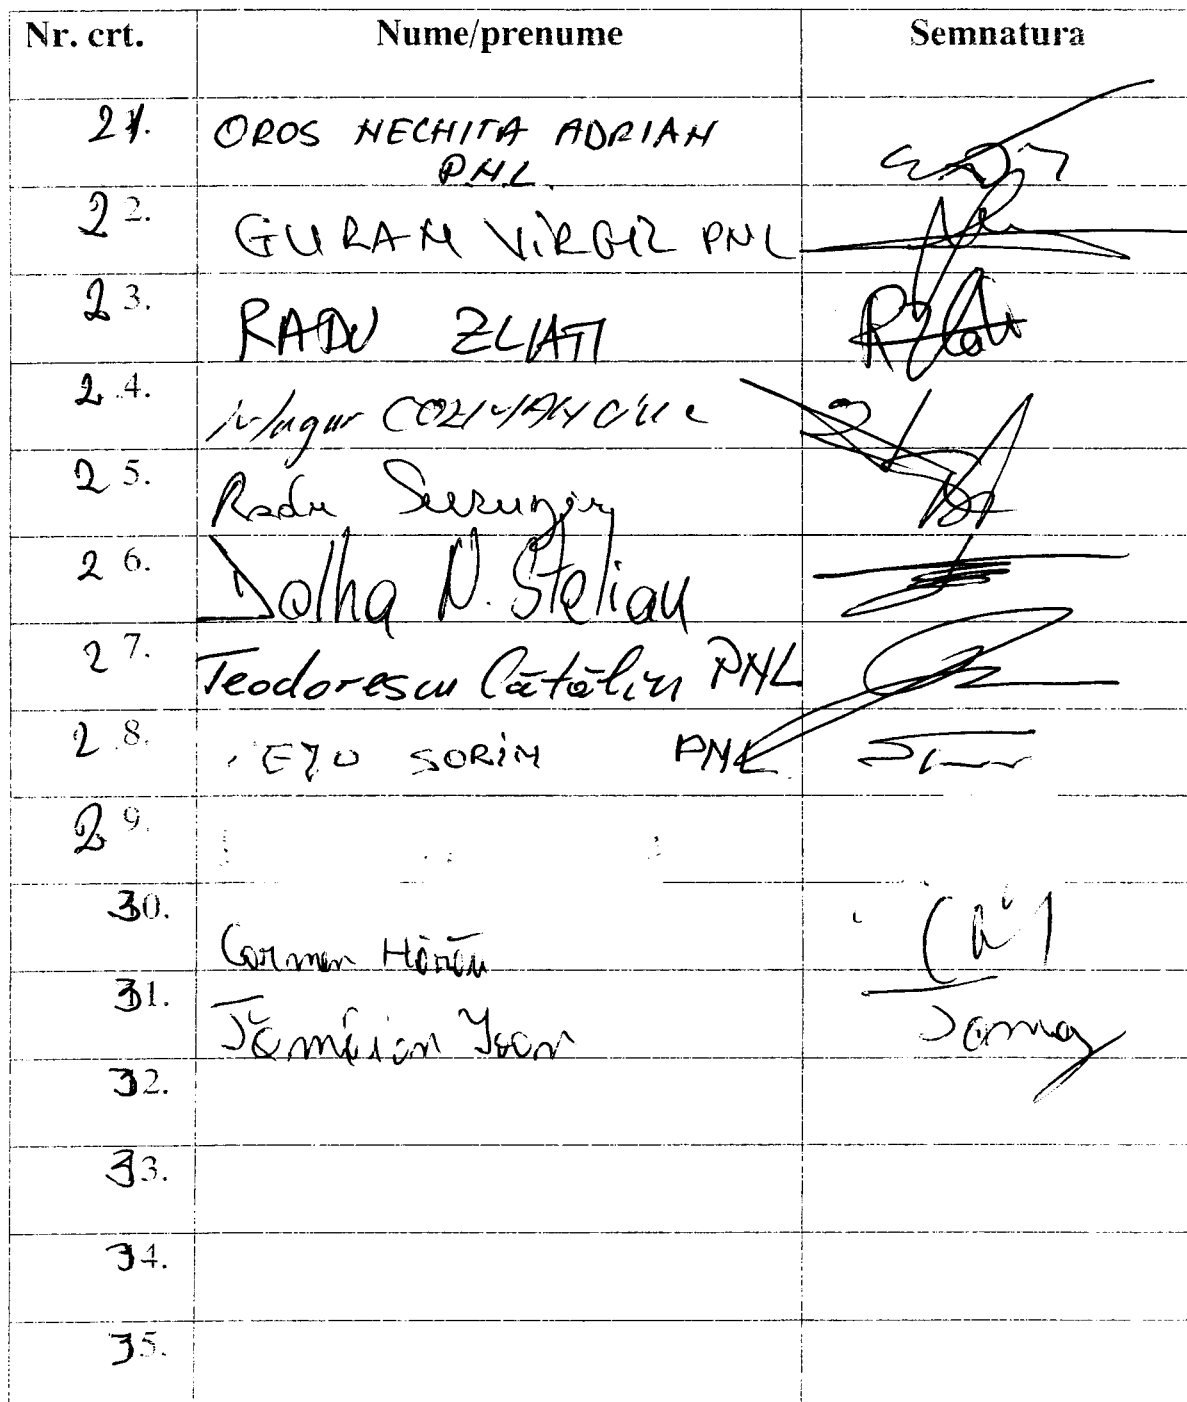 Nr. crt. Nume/prenume Semnatura
21. OROS NECHITA ADRIAN
PNL
22. GURAN VIRGIL PNL
23. RADU ZLATI
24. Mugur COZMANCIUC
25. Radu Surugiu
26. Dolha N. Stelian
27. Teodorescu Cătălin PNL
28. SORIN PNL
29.
30.
Carmen Hărău
31.
Tămâian Ioan
32.
33.
34.
35.